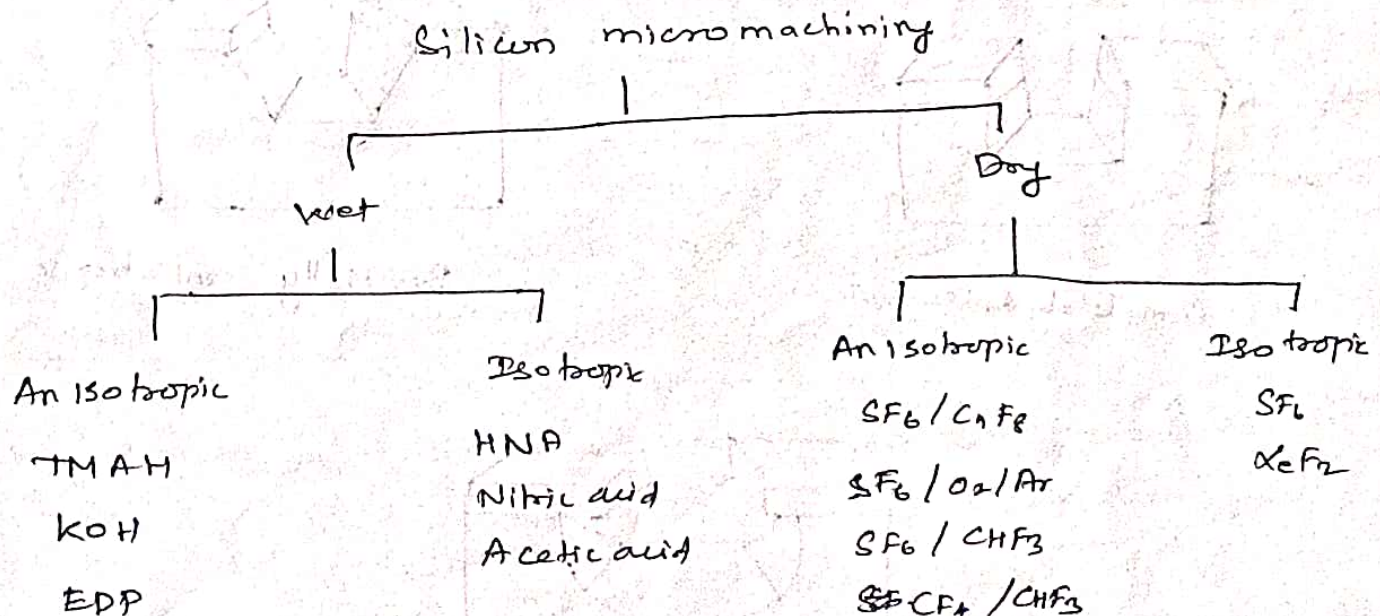 Silicon micromachining
Wet
Dry
Anisotropic
TMAH
KOH
EDP
Isotropic
HNA
Nitric acid
Acetic acid
Anisotropic
SF6 / C4F8
SF6 / O2 / Ar
SF6 / CHF3
CF4 / CHF3
Isotropic
SF6
XeF2